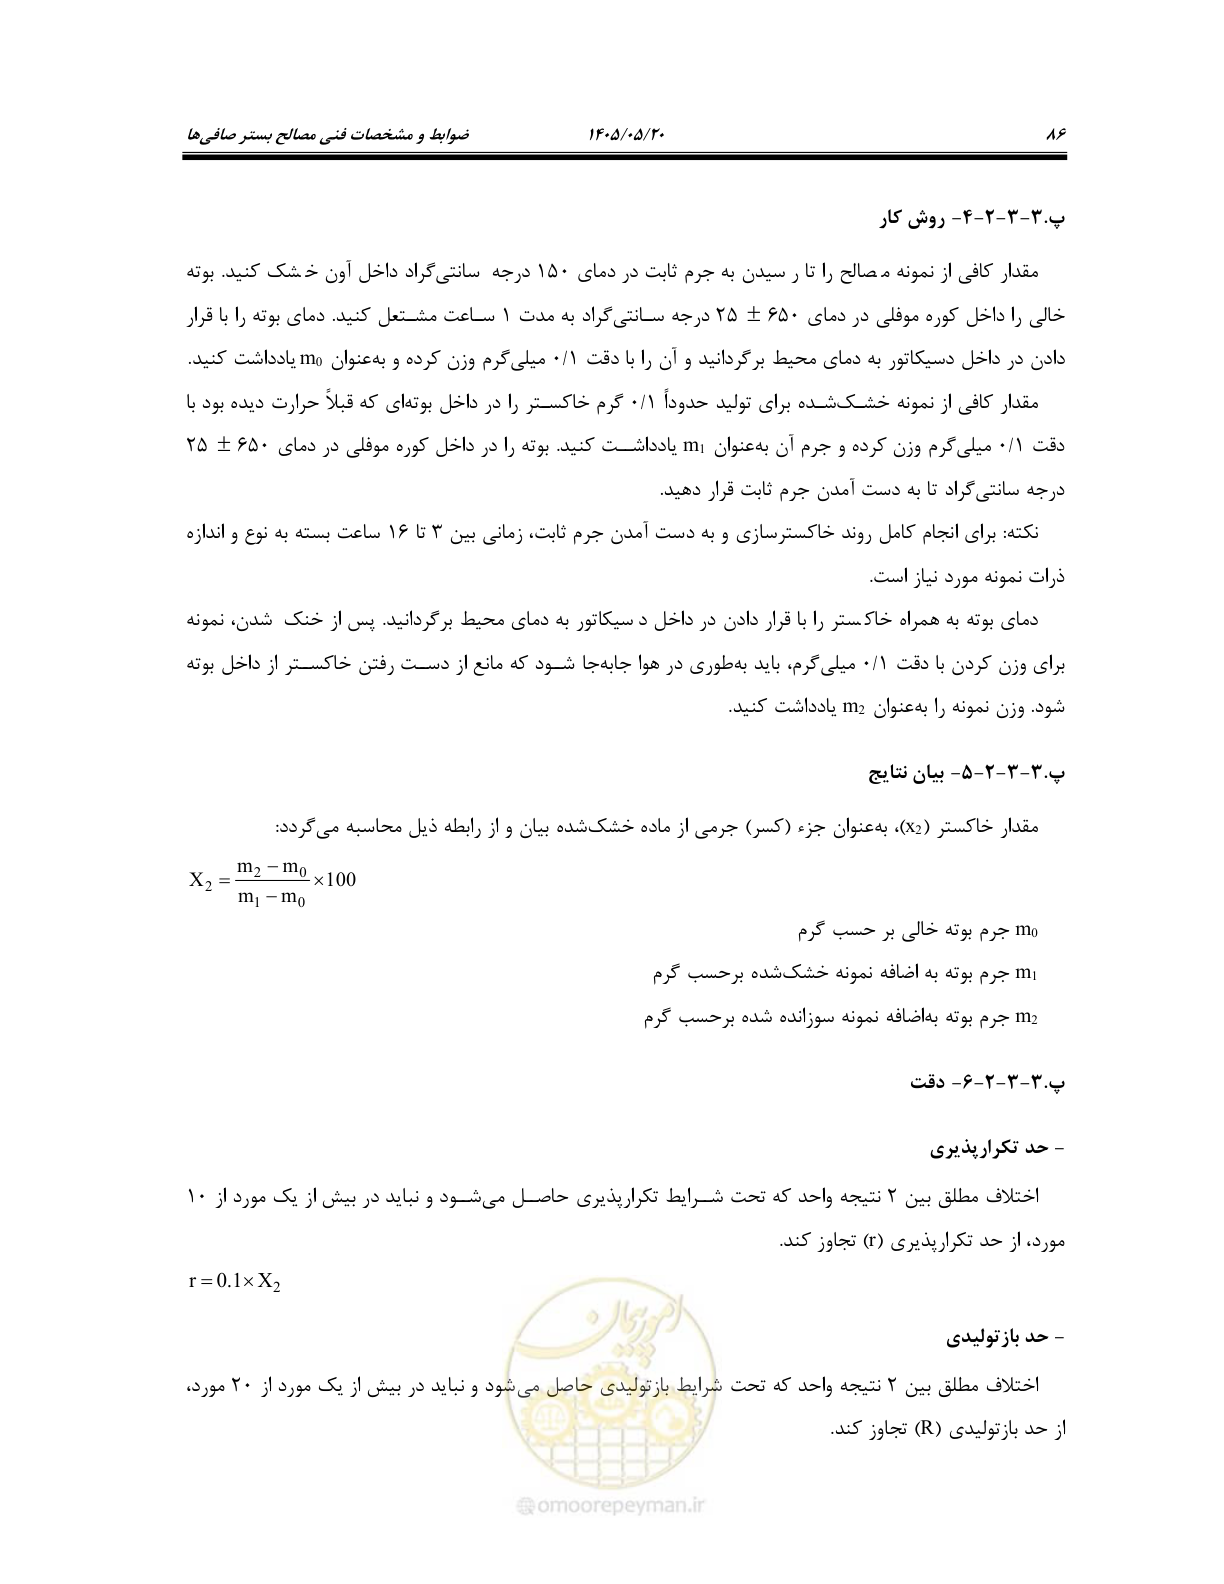 ۸۶ ۱۴۰۵/۰۵/۲۰ ضوابط و مشخصات فنی مصالح بستر صافی‌ها
پ.۳-۳-۲-۴- روش کار
مقدار کافی از نمونه مصالح را تا رسیدن به جرم ثابت در دمای ۱۵۰ درجه سانتی‌گراد داخل آون خشک کنید. بوته
خالی را داخل کوره موفلی در دمای ۶۵۰ ± ۲۵ درجه سانتی‌گراد به مدت ۱ ساعت مشتعل کنید. دمای بوته را با قرار
دادن در داخل دسیکاتور به دمای محیط برگردانید و آن را با دقت ۰/۱ میلی‌گرم وزن کرده و به‌عنوان m0 یادداشت کنید.
مقدار کافی از نمونه خشک‌شده برای تولید حدوداً ۰/۱ گرم خاکستر را در داخل بوته‌ای که قبلاً حرارت دیده بود با
دقت ۰/۱ میلی‌گرم وزن کرده و جرم آن به‌عنوان m1 یادداشت کنید. بوته را در داخل کوره موفلی در دمای ۶۵۰ ± ۲۵
درجه سانتی‌گراد تا به دست آمدن جرم ثابت قرار دهید.
نکته: برای انجام کامل روند خاکسترسازی و به دست آمدن جرم ثابت، زمانی بین ۳ تا ۱۶ ساعت بسته به نوع و اندازه
ذرات نمونه مورد نیاز است.
دمای بوته به همراه خاکستر را با قرار دادن در داخل دسیکاتور به دمای محیط برگردانید. پس از خنک شدن، نمونه
برای وزن کردن با دقت ۰/۱ میلی‌گرم، باید به‌طوری در هوا جابه‌جا شود که مانع از دست رفتن خاکستر از داخل بوته
شود. وزن نمونه را به‌عنوان m2 یادداشت کنید.
پ.۳-۳-۲-۵- بیان نتایج
مقدار خاکستر (x2)، به‌عنوان جزء (کسر) جرمی از ماده خشک‌شده بیان و از رابطه ذیل محاسبه می‌گردد:
X2 = (m2 − m0) / (m1 − m0) ×100
m0 جرم بوته خالی بر حسب گرم
m1 جرم بوته به اضافه نمونه خشک‌شده برحسب گرم
m2 جرم بوته به‌اضافه نمونه سوزانده شده برحسب گرم
پ.۳-۳-۲-۶- دقت
- حد تکرارپذیری
اختلاف مطلق بین ۲ نتیجه واحد که تحت شرایط تکرارپذیری حاصل می‌شود و نباید در بیش از یک مورد از ۱۰
مورد، از حد تکرارپذیری (r) تجاوز کند.
r = 0.1× X2
- حد بازتولیدی
اختلاف مطلق بین ۲ نتیجه واحد که تحت شرایط بازتولیدی حاصل می‌شود و نباید در بیش از یک مورد از ۲۰ مورد،
از حد بازتولیدی (R) تجاوز کند.
امور پیمان
@omoorepeyman.ir